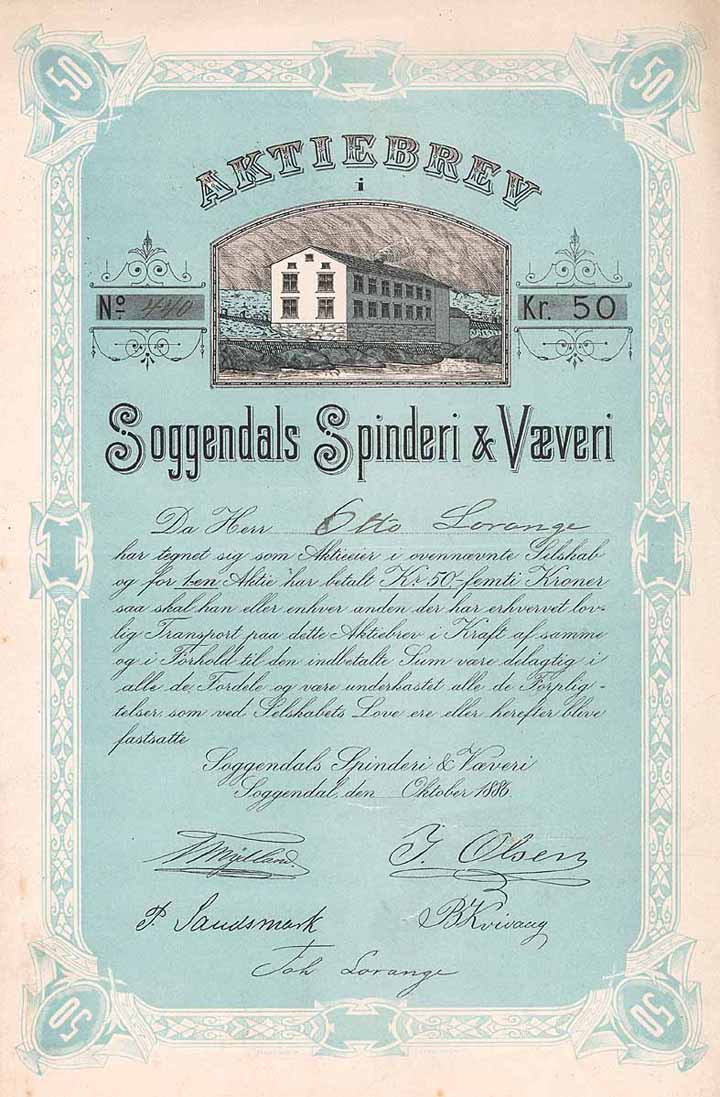 50
50
AKTIEBREV
i
No 440
Kr. 50
Soggendals Spinderi & Væveri
Da Herr Otto Lorange
har tegnet sig som Aktieeier i ovennævnte Selskab
og for 1-en Aktie har betalt Kr. 50-femti Kroner
saa skal han eller enhver anden der har erhvervet lov-
lig Transport paa dette Aktiebrev i Kraft af samme
og i Forhold til den indbetalte Sum være delagtig i
alle de Fordele og være underkastet alle de Forplig-
telser, som ved Selskabets Love ere eller herefter bleve
fastsatte
Soggendals Spinderi & Væveri
Soggendal, den Oktober 1886.
Mydland
J. Olsen
P. Sandsmark
B Kvivaug
Joh Lorange
50
50